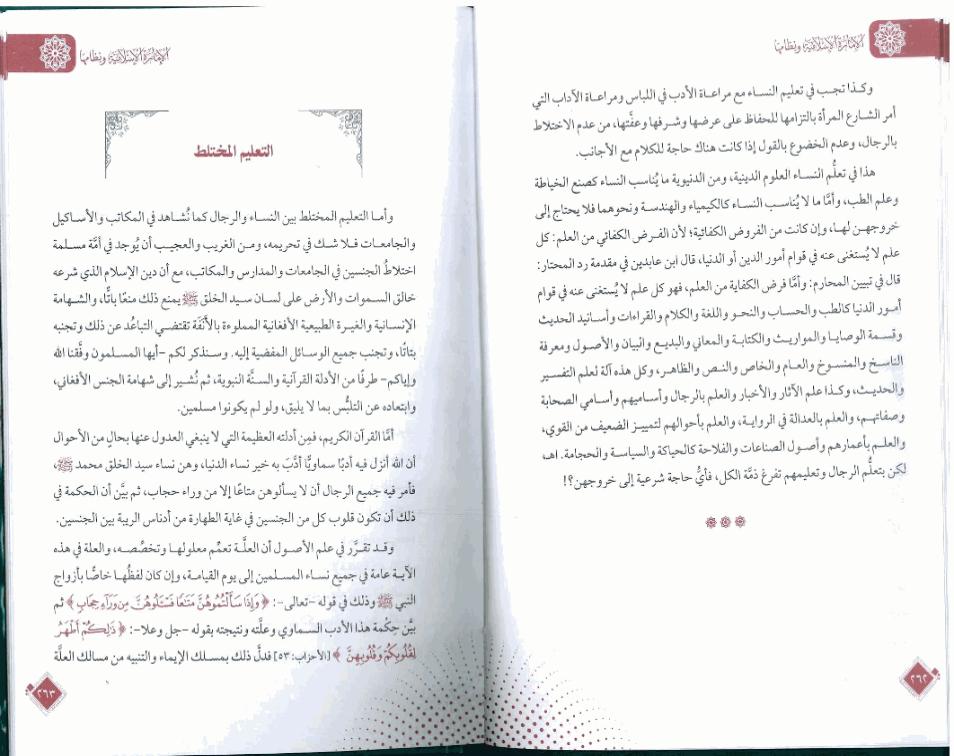 الإمارة الإسلامية ونظامها
وكذا تجب في تعليم النساء مع مراعاة الأدب في اللباس ومراعاة الآداب التي
أمر الشارع المرأة بالتزامها للحفاظ على عرضها وشرفها وعفَّتها، من عدم الاختلاط
بالرجال، وعدم الخضوع بالقول إذا كانت هناك حاجة للكلام مع الأجانب.
هذا في تعلُّم النساء العلوم الدينية، ومن الدنيوية ما يُناسب النساء كصنع الخياطة
وعلم الطب، وأمَّا ما لا يُناسب النساء كالكيمياء والهندسة ونحوهما فلا يحتاج إلى
خروجهن لها، وإن كانت من الفروض الكفائية؛ لأن الفرض الكفائي من العلم: كل
علم لا يُستغنى عنه في قوام أمور الدين أو الدنيا، قال ابن عابدين في مقدمة رد المحتار:
قال في تبيين المحارم: وأمَّا فرض الكفاية من العلم، فهو كل علم لا يُستغنى عنه في قوام
أمور الدنيا كالطب والحساب والنحو واللغة والكلام والقراءات وأسانيد الحديث
وقسمة الوصايا والمواريث والكتابة والمعاني والبديع والبيان والأصول ومعرفة
الناسخ والمنسوخ والعام والخاص والنص والظاهر، وكل هذه آلة لعلم التفسير
والحديث، وكذا علم الآثار والأخبار والعلم بالرجال وأساميهم وأسامي الصحابة
وصفاتهم، والعلم بالعدالة في الرواية، والعلم بأحوالهم لتمييز الضعيف من القوي،
والعلم بأعمارهم وأصول الصناعات والفلاحة كالحياكة والسياسة والحجامة. اهـ،
لكن بتعلُّم الرجال وتعليمهم تفرغ ذمَّة الكل، فأيُّ حاجة شرعية إلى خروجهن؟!
٢٦٢
الإمارة الإسلامية ونظامها
التعليم المختلط
وأما التعليم المختلط بين النساء والرجال كما نُشاهد في المكاتب والأساكيل
والجامعات فلا شك في تحريمه، ومن الغريب والعجيب أن يُوجد في أمَّة مسلمة
اختلاطُ الجنسين في الجامعات والمدارس والمكاتب، مع أن دين الإسلام الذي شرعه
خالق السموات والأرض على لسان سيد الخلق ﷺ يمنع ذلك منعًا باتًّا، والشهامة
الإنسانية والغيرة الطبيعية الأفغانية المملوءة بالأَنَفَة تقتضي التباعُد عن ذلك وتجنبه
بتاتًا، وتجنب جميع الوسائل المفضية إليه. وسنذكر لكم -أيها المسلمون وفَّقنا الله
وإياكم- طرفًا من الأدلة القرآنية والسنَّة النبوية، ثم نُشير إلى شهامة الجنس الأفغاني،
وابتعاده عن التلبُّس بما لا يليق، ولو لم يكونوا مسلمين.
أمَّا القرآن الكريم، فمِن أدلته العظيمة التي لا ينبغي العدول عنها بحالٍ من الأحوال
أن الله أنزل فيه أدبًا سماويًّا أدَّب به خير نساء الدنيا، وهن نساء سيد الخلق محمد ﷺ،
فأمر فيه جميع الرجال أن لا يسألوهن متاعًا إلا من وراء حجاب، ثم بيَّن أن الحكمة في
ذلك أن تكون قلوب كل من الجنسين في غاية الطهارة من أدناس الريبة بين الجنسين.
وقد تقرَّر في علم الأصول أن العلَّة تعمِّم معلولها وتخصِّصه، والعلة في هذه
الآية عامة في جميع نساء المسلمين إلى يوم القيامة، وإن كان لفظُها خاصًّا بأزواج
النبي ﷺ وذلك في قوله -تعالى-: ﴿وَإِذَا سَأَلْتُمُوهُنَّ مَتَٰعًا فَسْـَٔلُوهُنَّ مِن وَرَآءِ حِجَابٍ﴾ ثم
بيَّن حِكمة هذا الأدب السماوي وعلَّته ونتيجته بقوله -جل وعلا-: ﴿ذَٰلِكُمْ أَطْهَرُ
لِقُلُوبِكُمْ وَقُلُوبِهِنَّ﴾ [الأحزاب: ٥٣] فدلَّ ذلك بمسلك الإيماء والتنبيه من مسالك العلة
٢٦٣